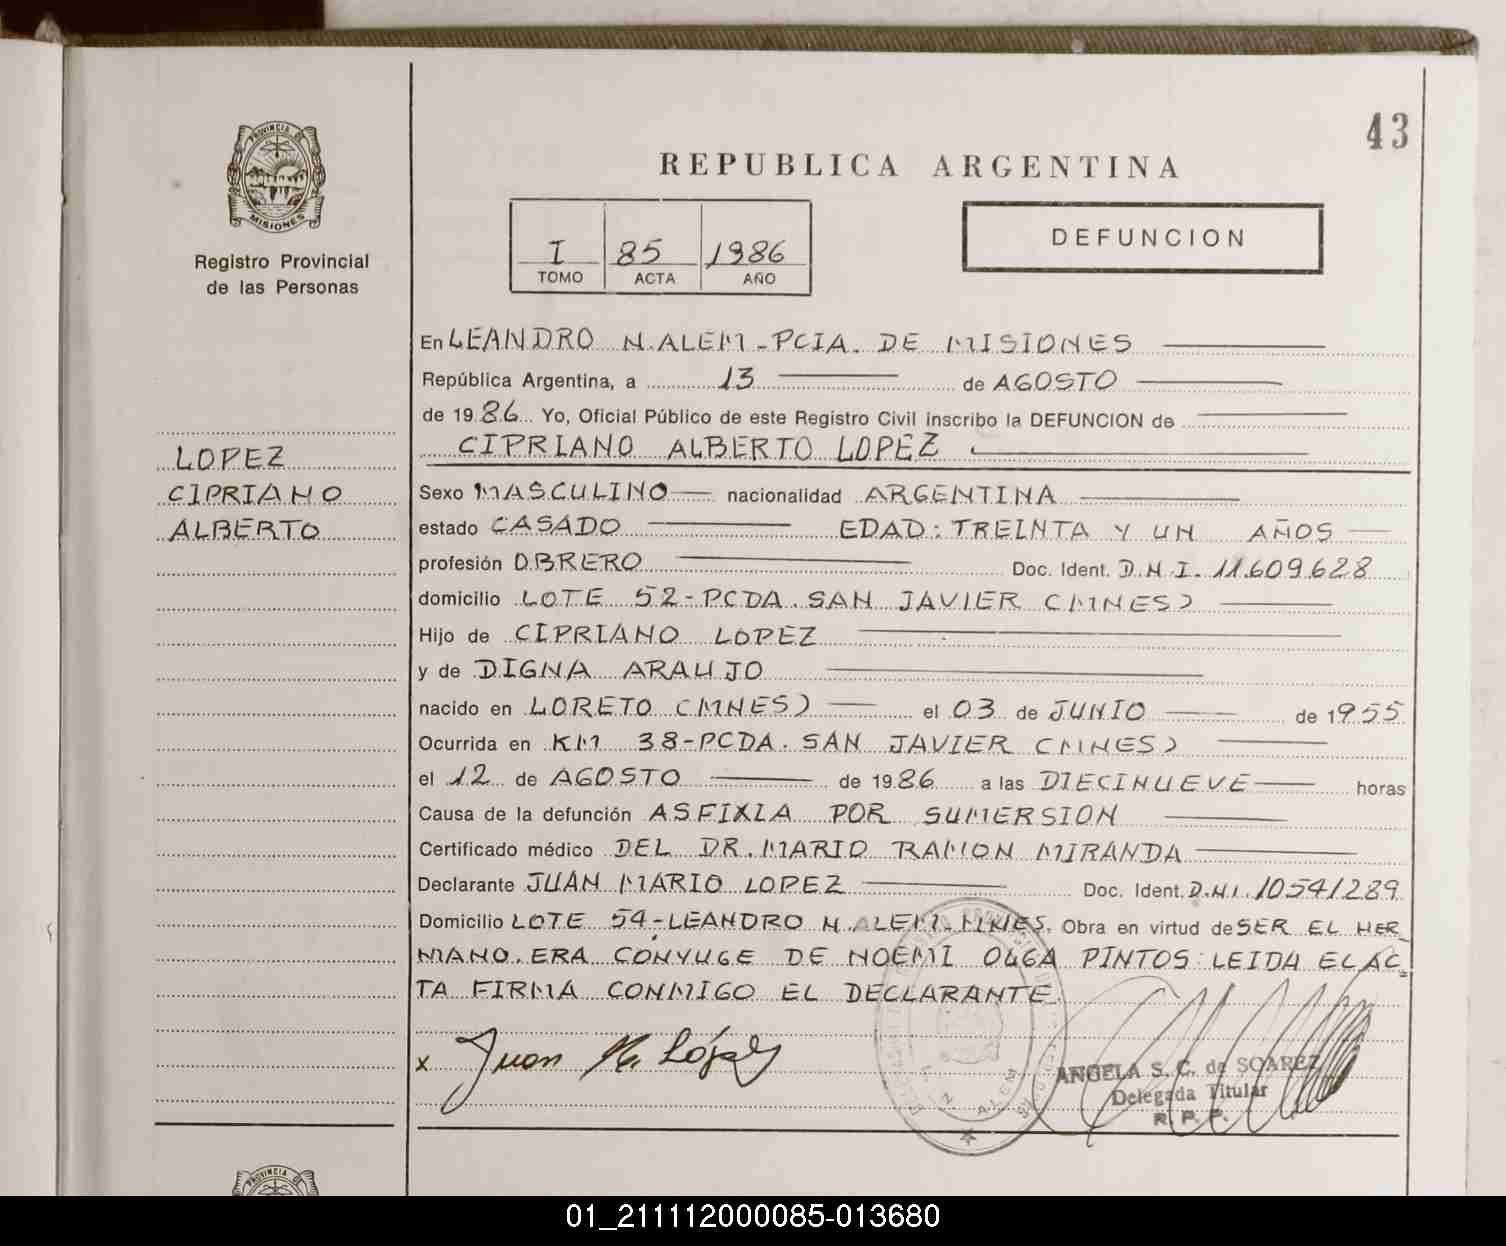 43
REPUBLICA ARGENTINA
PROVINCIA DE
MISIONES
Registro Provincial
de las Personas
I 85 1986
TOMO ACTA AÑO
DEFUNCION
LOPEZ
CIPRIANO
ALBERTO
En LEANDRO N. ALEM - PCIA. DE MISIONES
República Argentina, a 13 de AGOSTO
de 1986 Yo, Oficial Público de este Registro Civil inscribo la DEFUNCION de
CIPRIANO ALBERTO LOPEZ
Sexo MASCULINO nacionalidad ARGENTINA
estado CASADO EDAD: TREINTA Y UN AÑOS
profesión OBRERO Doc. Ident. D.N.I. 11.609.628
domicilio LOTE 52 - PCDA. SAN JAVIER (MNES)
Hijo de CIPRIANO LOPEZ
y de DIGNA ARAUJO
nacido en LORETO (MNES) el 03 de JUNIO de 1955
Ocurrida en KM 38 - PCDA. SAN JAVIER (MNES)
el 12 de AGOSTO de 1986 a las DIECINUEVE horas
Causa de la defunción ASFIXIA POR SUMERSION
Certificado médico DEL DR. MARIO RAMON MIRANDA
Declarante JUAN MARIO LOPEZ Doc. Ident. D.N.I. 10541289
Domicilio LOTE 54 - LEANDRO N. ALEM. MNES. Obra en virtud de SER EL HER
MANO. ERA CONYUGE DE NOEMI OLGA PINTOS: LEIDA EL AC-
TA FIRMA CONMIGO EL DECLARANTE.
x Juan M. López
ANGELA S. C. de SOAREZ
Delegada Titular
R. P. P.
L. N. ALEM
PROVINCIA DE
01_211112000085-013680